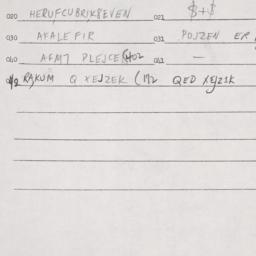 020 HERUFCUBRIKSEVEN 021 $+$
030 AKALEFIR 031 POJZEN ER
040 AFMT PLEJCE 041 —
RAKUM Q XEJZEK (M2 QED XEJZIK